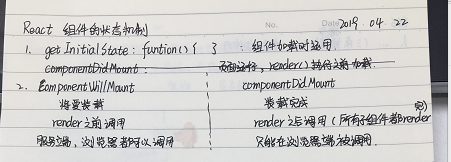 No. Date 2019 04 22
React 组件的状态机制
1. getInitialState: funtion() { } : 组件加载时运用.
componentDidMount: 页面运行, render() 执行之前加载.
2. ComponentWillMount componentDidMount
将要装载 装载完成
render之前调用 render之后调用 (所有子组件都render完)
服务端, 浏览器都可以调用 只能在浏览器端被调用.